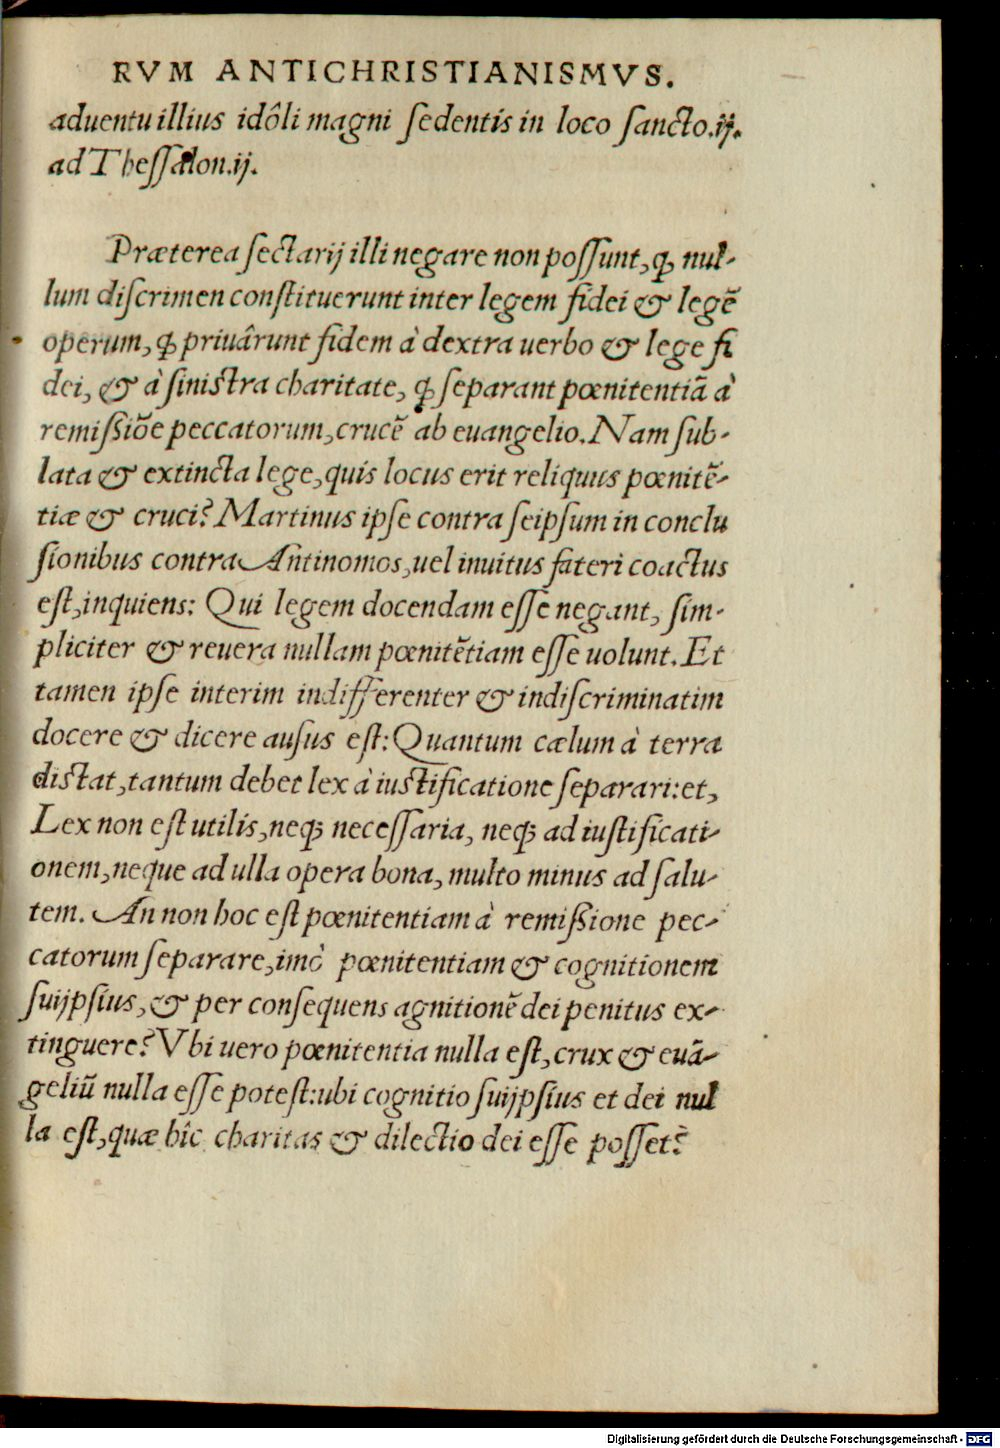 RVM ANTICHRISTIANISMVS.
aduentu illius idôli magni ſedentis in loco ſancto.ij.
ad Theſſalon.ij.
Præterea ſectarij illi negare non poſſunt, ꝙ nul-
lum diſcrimen conſtituerunt inter legem fidei & legẽ
operum, ꝙ priuârunt fidem à dextra uerbo & lege fi
dei, & à ſiniſtra charitate, ꝙ ſeparant pœnitentiã à
remiſſiõe peccatorum, crucẽ ab euangelio. Nam ſub-
lata & extincta lege, quis locus erit reliquus pœnitẽ-
tiæ & cruci? Martinus ipſe contra ſeipſum in conclu
ſionibus contra Antinomos, uel inuitus fateri coactus
eſt, inquiens: Qui legem docendam eſſe negant, ſim-
pliciter & reuera nullam pœnitẽtiam eſſe uolunt. Et
tamen ipſe interim indifferenter & indiſcriminatim
docere & dicere auſus eſt: Quantum cælum à terra
diſtat, tantum debet lex à iuſtificatione ſeparari: et,
Lex non eſt utilis, neqꝫ neceſſaria, neqꝫ ad iuſtificati-
onem, neque ad ulla opera bona, multo minus ad ſalu-
tem. An non hoc eſt pœnitentiam à remiſſione pec-
catorum ſeparare, imò pœnitentiam & cognitionem
ſuijpſius, & per conſequens agnitionẽ dei penitus ex-
tinguere? Vbi uero pœnitentia nulla eſt, crux & euã-
geliũ nulla eſſe poteſt: ubi cognitio ſuijpſius et dei nul
la eſt, quæ hîc charitas & dilectio dei eſſe poſſet?
Digitalisierung gefördert durch die Deutsche Forschungsgemeinschaft - DFG